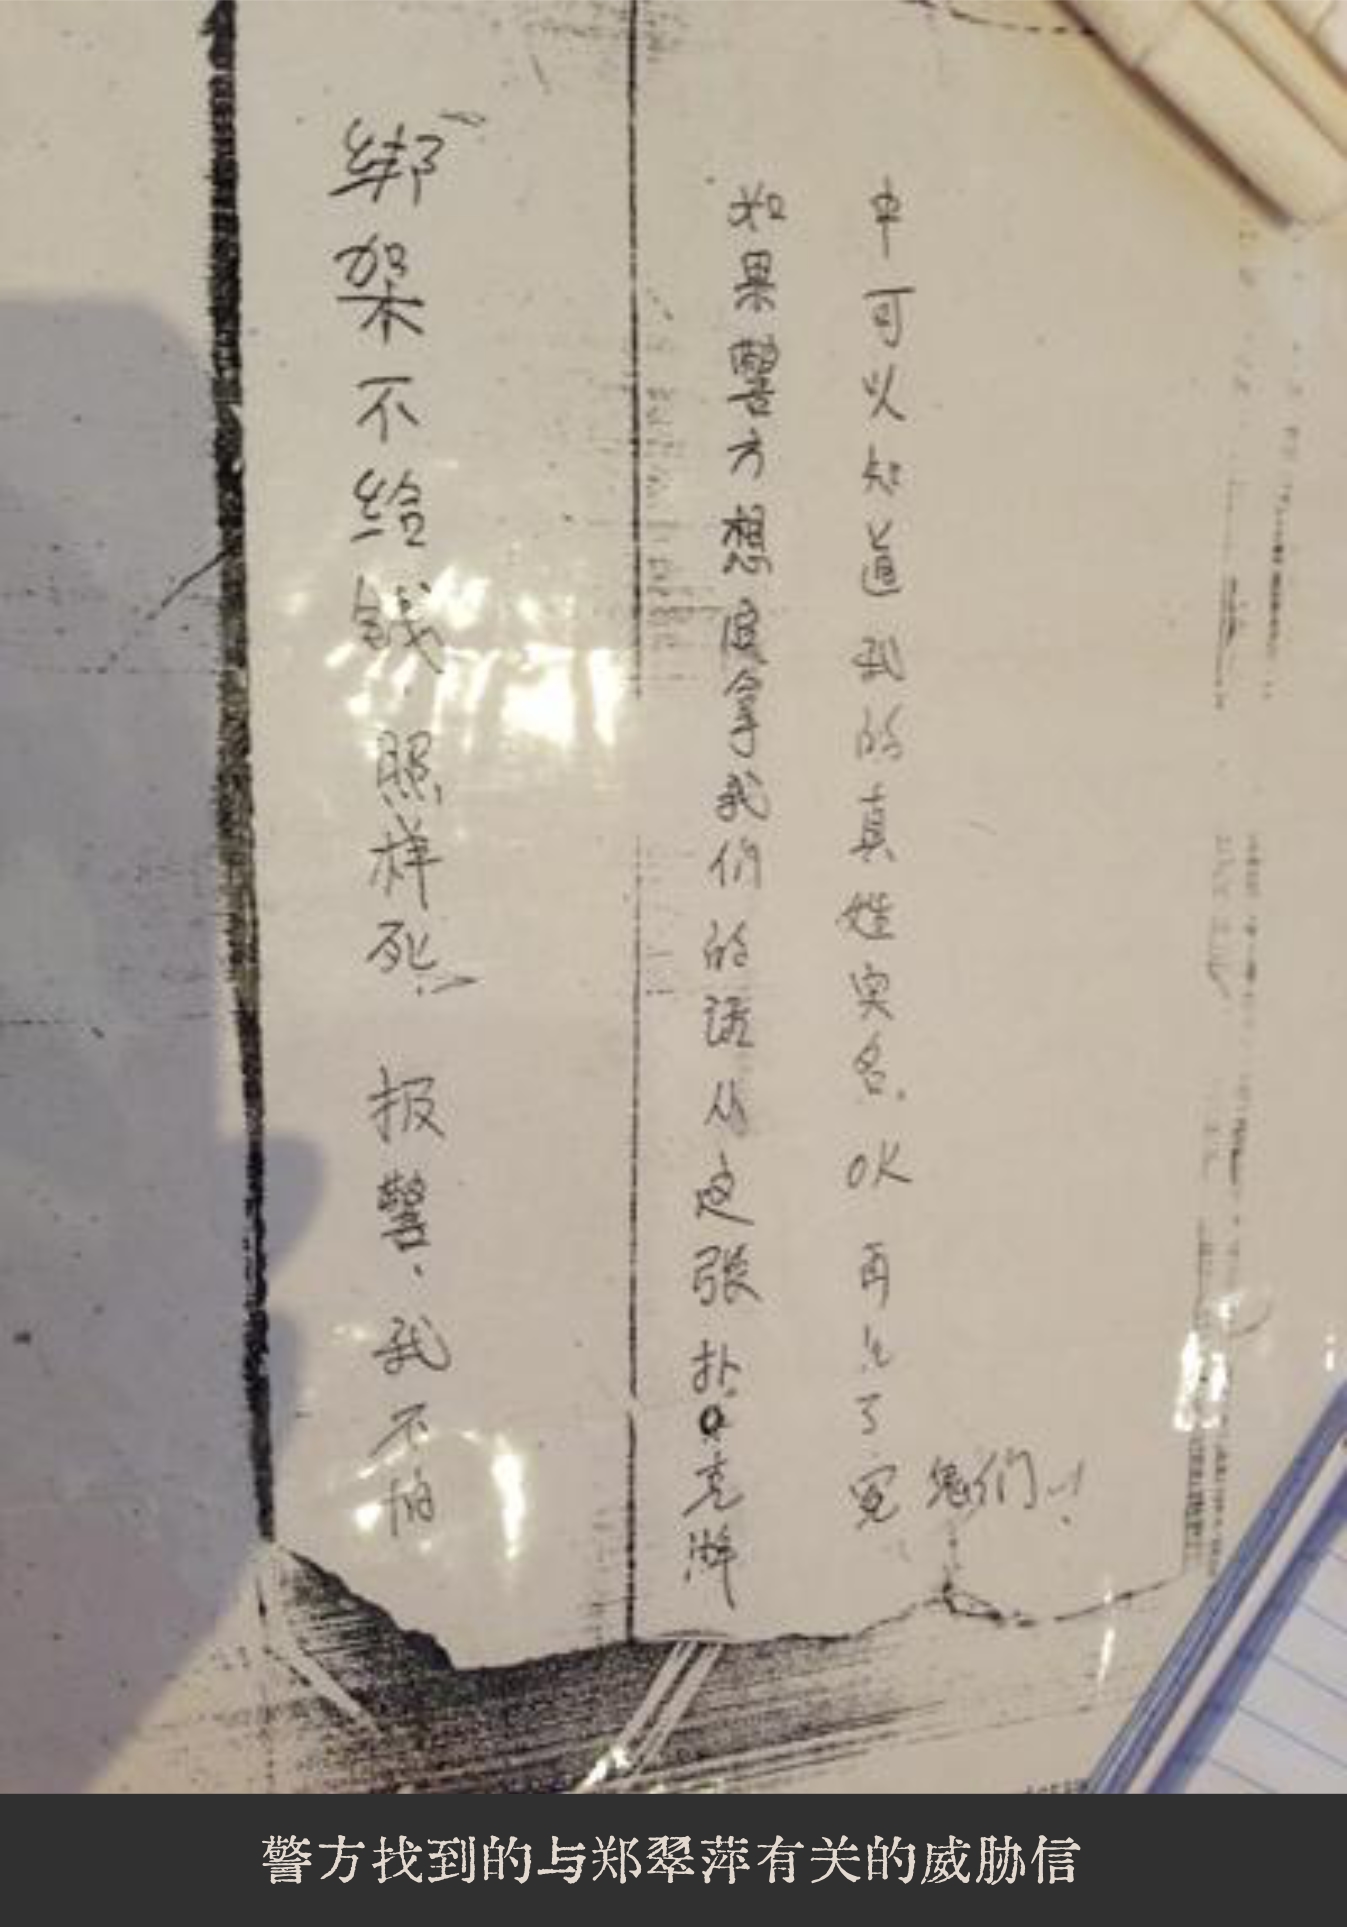 绑架不给钱.照样死.报警.我不怕
如果警方想 拿我们的话从这张扑克牌
中可以知道我的真姓实名.OK再 了冤
鬼们!
警方找到的与郑翠萍有关的威胁信